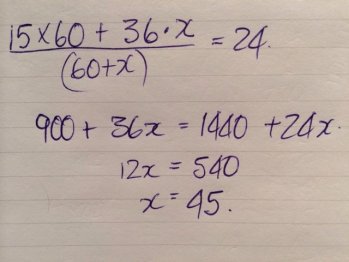 15×60 + 36·x
(60+x) = 24.
900 + 36x = 1440 + 24x.
12x = 540
x = 45.